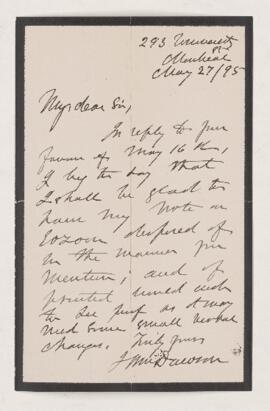 293 University St
Montreal
May 27/95
My dear Sir,
In reply to your
favour of May 16th,
I beg to say that
I shall be glad to
have my note on
Eozoon disposed of
in the manner you
mention; and if
printed would wish
to see proof as it may
need some small verbal
changes. Truly yours
J Wm Dawson